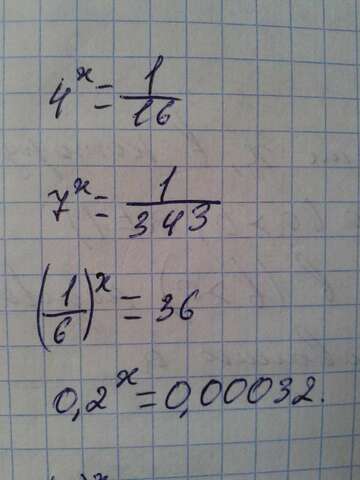 4^x = 1/16
7^x = 1/343
(1/6)^x = 36
0,2^x = 0,00032.